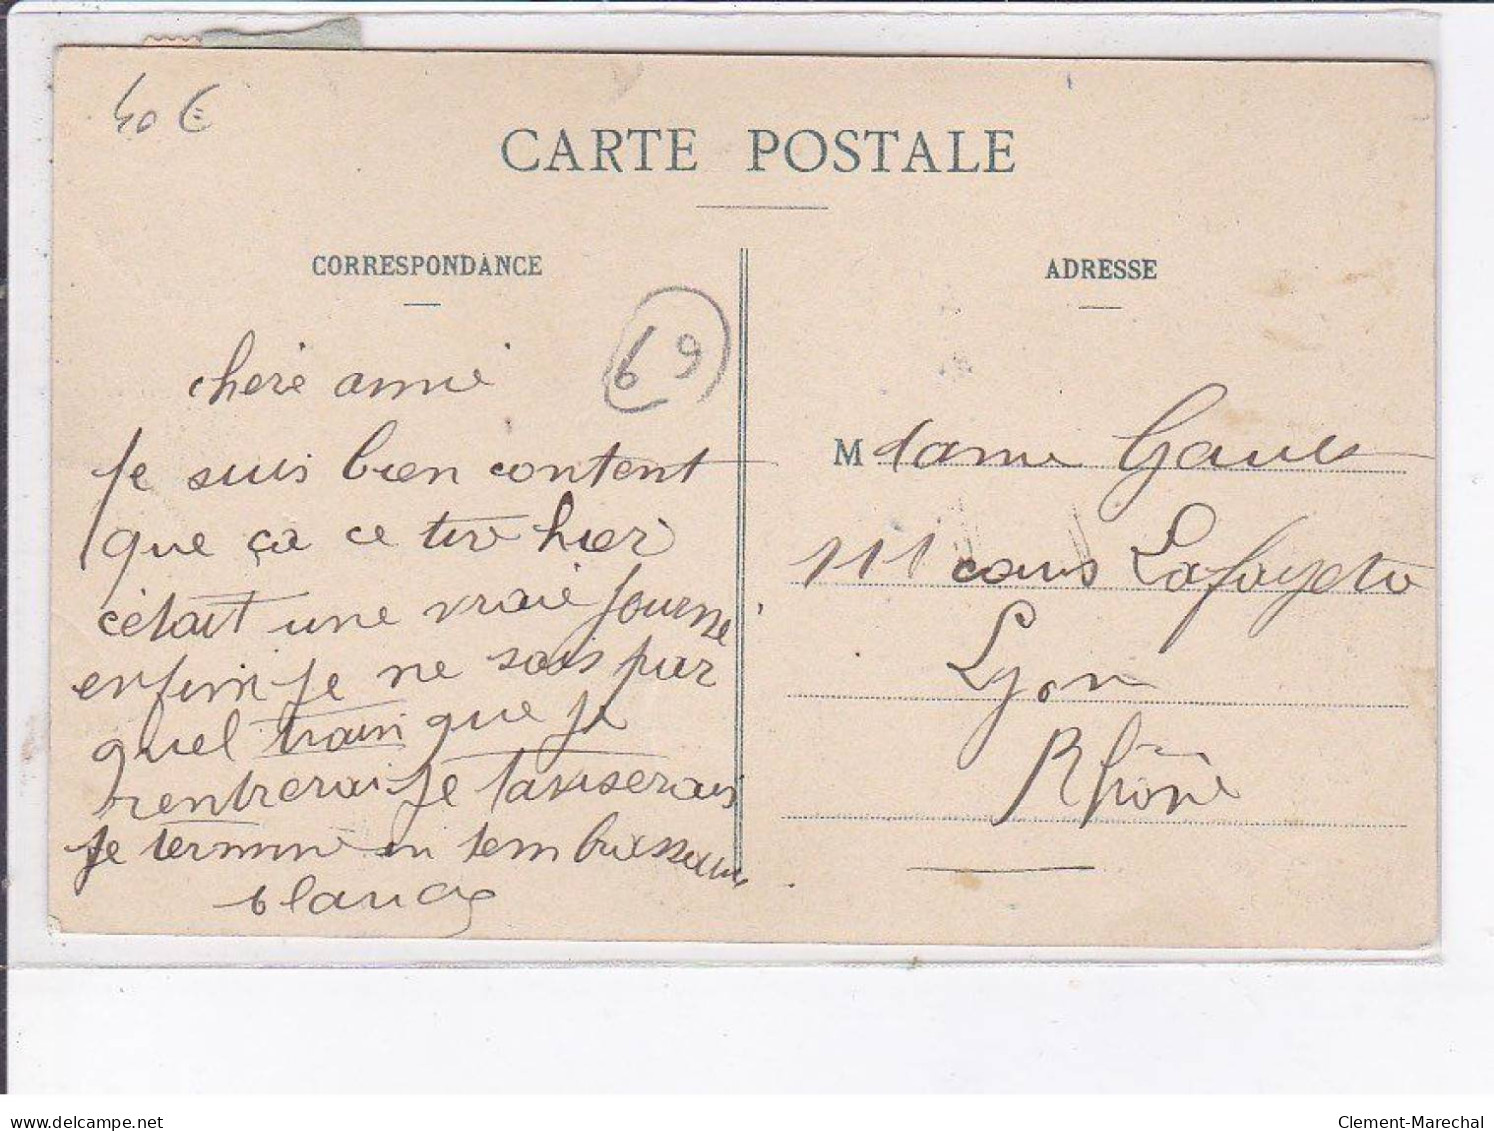 40 €
CARTE POSTALE
CORRESPONDANCE
ADRESSE
69
chère amie
Je suis bien content
que ça ce tire hier
c'était une vraie journé
enfin je ne sais par
quel train que je
rentrerai je taviserais
Je termine en tembrassan
blanch
Madame Gault
111 cours Lafayette
Lyon
Rhône
www.delcampe.net
Clement-Marechal